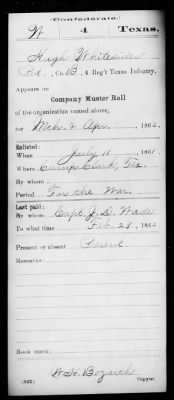 (Confederate.)
W 4 Texas.
Hugh Whitesides
Pvt., Co. B, 4 Reg't Texas Infantry.
Appears on
Company Muster Roll
of the organization named above,
for Mch. & Apr., 1862.
Enlisted:
When July 11, 1861.
Where Camp Clark, Tex.
By whom
Period For the War.
Last paid:
By whom Capt. J. D. Wade
To what time Feb. 28, 1862.
Present or absent Present
Remarks:
Book mark:
W. H. Bozarth
(642) Copyist.